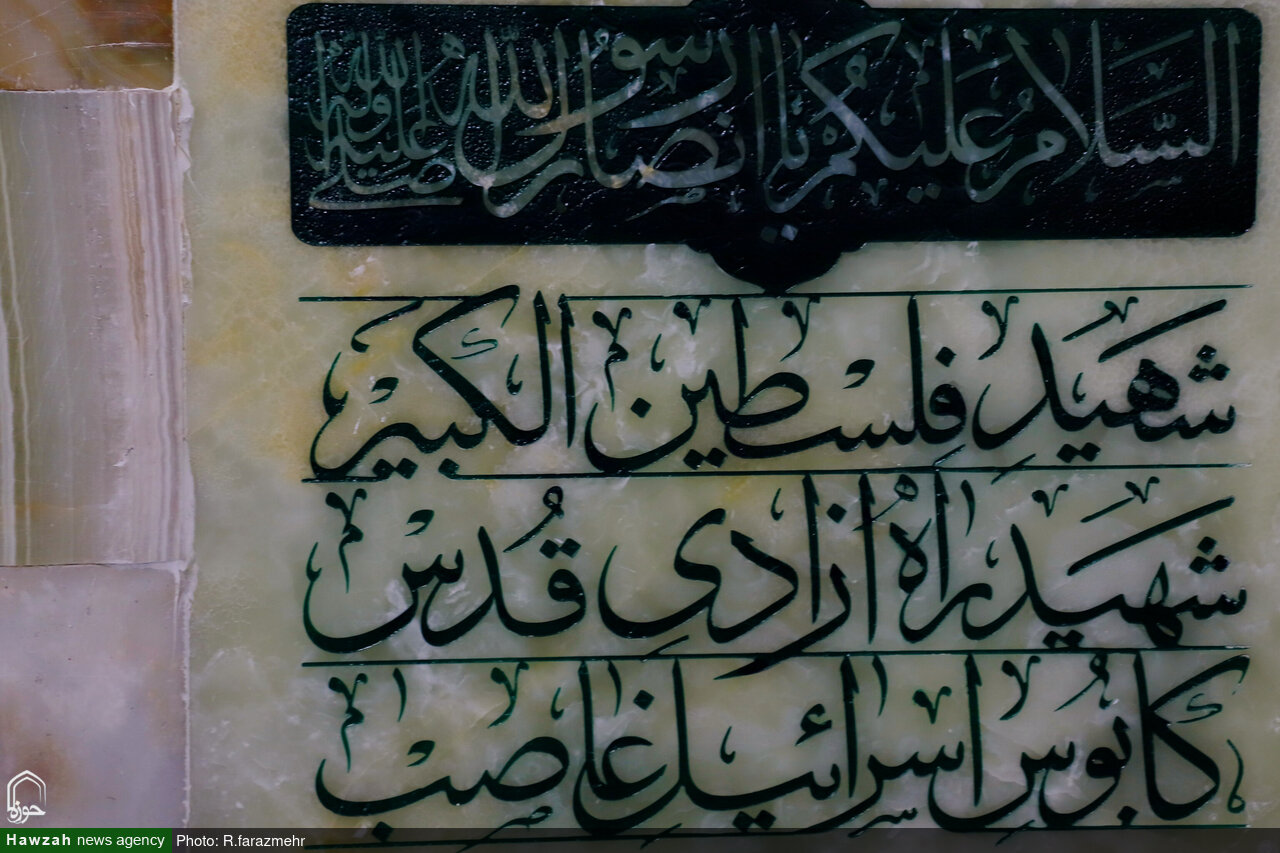 السَّلامُ عَلَیکُم یا اَنصارَ رَسولِ اللّهِ صَلَّی اللّهُ عَلَیهِ وَآلِه
شهید فِلسطین الکبیر
شهید راهِ آزادیِ قُدس
کابوسِ اسرائیل غاصب
حوزه
Hawzah news agency Photo: R.farazmehr